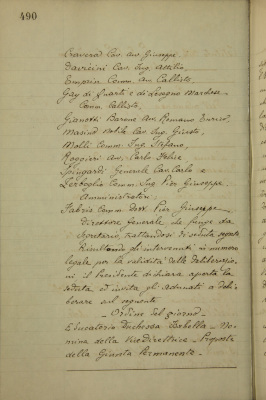 490
Craveri Cav. Avv. Giuseppe
Davicini Cav. Ing. Attilio,
Empria Comm. Avv. Callisto,
Gay di Quarti e di Lesegno Marchese
Comm. Callisto,
Gianotti Barone Avv. Romano Enrico,
Masino Nobile Cav. Ing. Giusto,
Molli Comm. Ing. Stefano,
Roggieri Avv. Carlo Felice
Spingardi Generale Cav. Carlo e
Zerboglio Comm. Ing. Pier Giuseppe
Amministratori
Fabris Comm. Dott. Pier Giuseppe
Direttore Generale che funge da
Segretario, trattandosi di seduta segreta
Risultando gli intervenuti in numero
legale per la validità delle deliberazio-
ni il Presidente dichiara aperta la
seduta ed invita gli adunati a deli-
berare sul seguente
- Ordine del giorno -
Educatorio Duchessa Isabella - No-
mina della Vicedirettrice - Proposta
della Giunta Permanente -